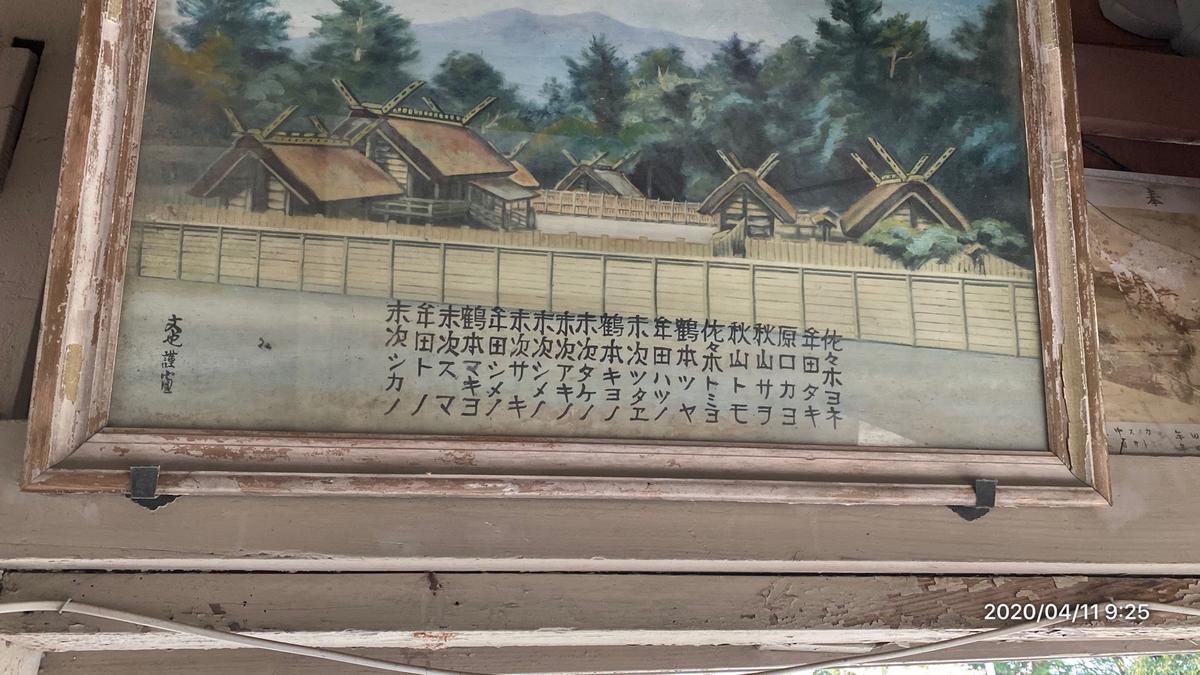 佐々木ヨネ
牟田タキ
原口カヨ
秋山サヲ
秋山トモ
佐々木トミヨ
鶴本ツヤ
牟田ハツノ
末次ツタヱ
鶴本キヨノ
末次タケノ
末次アキノ
末次シメノ
末次サキ
牟田シメノ
鶴本マキヨ
末次スマ
牟田トノ
末次シカノ
謹畫
奉
2020/04/11 9:25